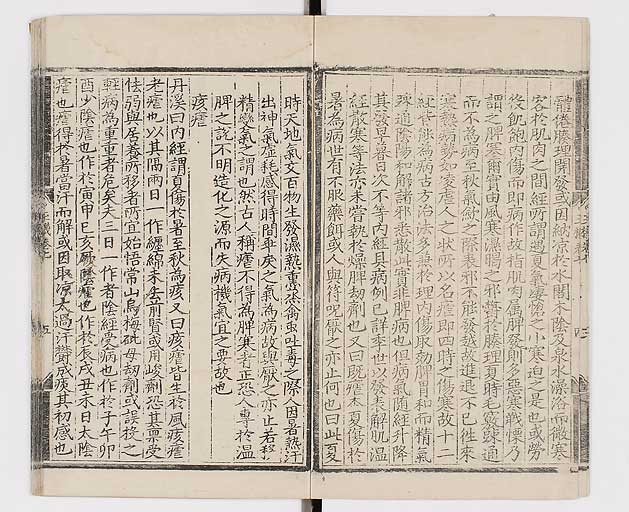 體倦腠理開發或因納凉於水閣木陰及泉水澡浴而微寒
客於肌肉之間經所謂遇夏氣凄愴之小寒迫之是也或勞
役飢飽內傷而即病作故指肌肉属脾發則多惡寒戰慄乃
謂之脾寒爾實由風寒濕暍之邪欝於腠理夏時毛竅踈通
而不爲病至秋氣收之際表邪不能發越故進退不已徃來
寒熱病勢如凌虐人之狀所以名瘧即四時之傷寒故十二
經皆能爲病古方治法多兼於理內傷取効脾胃和而精氣
踈通陰陽和解諸邪悉散此實非脾病也但病氣随經升降
其發早暮日次不等內經具病例已詳季世以發表解肌温
經散寒等法亦未嘗執於燥脾刼劑也又曰旣瘧本夏傷於
暑爲病世有不服藥餌或人與符呪厭之亦止何也曰此夏
時天地氣交百物生發濕熱薫蒸禽虫吐毒之際人因暑熱汗
出神氣虛耗感得時間乖戾之氣爲病故與厭之亦止若移
精變氣之謂也然古人稱瘧不得爲脾寒者正恐人專於温
脾之說不明造化之源而失病機氣宜之要故也
痎瘧
丹溪曰內經謂夏傷於暑至秋爲痎又曰痎瘧皆生於風痎瘧
老瘧也以其隔兩日一作纏綿未去前賢或用峻劑恐其禀受
怯弱與居養所移者所宜始悟常山烏梅砒丹刼劑或誤投之
輕病爲重重者危矣夫三日一作者陰經受病也作於子午卯
酉少陰瘧也作於寅申巳亥厥陰瘧也作於辰戌丑未日太陰
瘧也瘧得於暑當汗而解或因取凉太過汗欝成痰其初感也